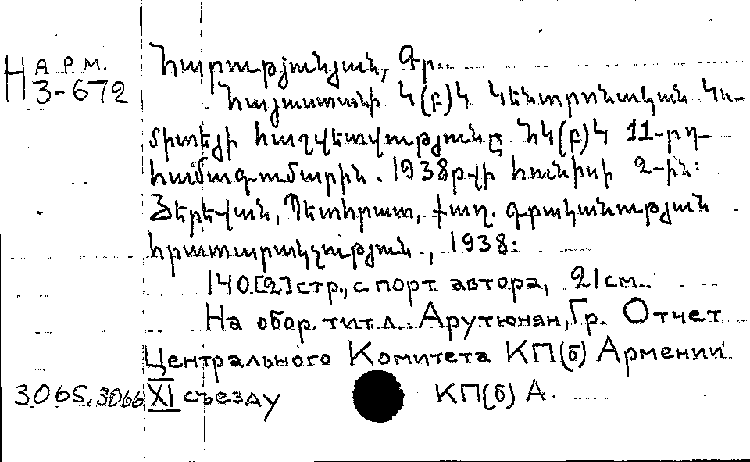 Н АРМ.
3-672
Հարությունյան, Գր.
Հայաստանի Կ(բ)Կ Կենտրոնական Կո-
միտեյի հաշվետվությունը ՀԿ(բ)Կ 11-րդ
համագումարին. 1938թվի հունիսի 2-ին:
Յերեվան, Պետհրատ, քաղ. գրականության
հրատարակչություն., 1938:
140[2]стр., с порт. автора, 21см.
На обор. тит. л. Арутюнян, Гр. Отчет
Центрального Комитета КП(б) Армении
XI съезду КП(б) А.
3065.3066